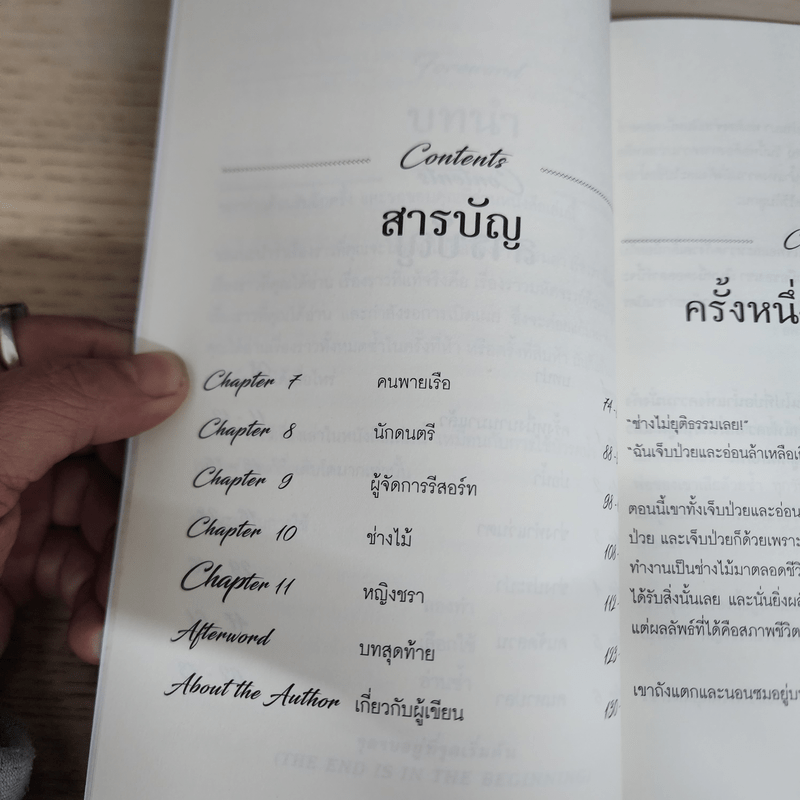 Contents
สารบัญ
Chapter 7 คนพายเรือ 74-
Chapter 8 นักดนตรี 88-
Chapter 9 ผู้จัดการรีสอร์ท 98-
Chapter 10 ช่างไม้ 108-
Chapter 11 หญิงชรา 112-
Afterword บทสุดท้าย 123-
About the Author เกี่ยวกับผู้เขียน 130-
ครั้งหนึ่
"ช่างไม่ยุติธรรมเลย!"
"ฉันเจ็บป่วยและอ่อนล้าเหลือเ
ตอนนี้เขาทั้งเจ็บป่วยและอ่อน
ป่วย และเจ็บป่วยก็ด้วยเพราะ
ทำงานเป็นช่างไม้มาตลอดชีวิ
ได้รับสิ่งนั้นเลย และนั่นยิ่งผลั
แต่ผลลัพธ์ที่ได้คือสภาพชีวิต
เขาถังแตกและนอนซมอยู่บ